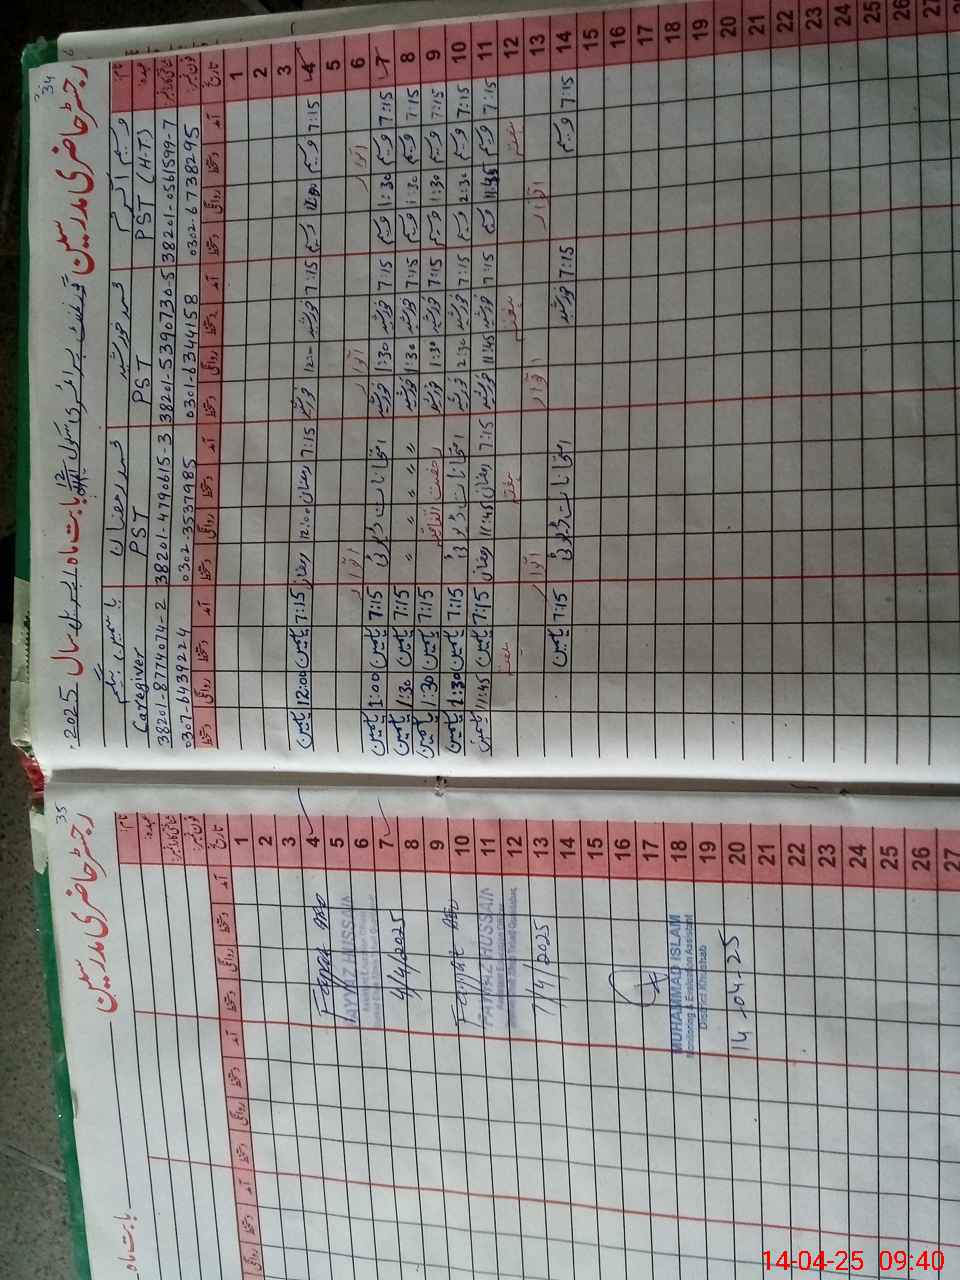 34
رجسٹر حاضری مدرسین گورنمنٹ پرائمری سکول بابت ماہ اپریل سال 2025
نام وسیم اکرم محمد خورشید محمد رمضان یاسمین بیگم
عہدہ PST (H.T) PST PST Caregiver
38201-0561599-7 38201-5390730-5 38201-4790615-3 38201-8774074-2
0302-6738295 0301-6344158 0302-3537985 0307-6439224
تاریخ آمد دستخط روانگی دستخط آمد دستخط روانگی دستخط آمد دستخط روانگی دستخط آمد دستخط روانگی دستخط
1
2
3
4 7:15 وسیم 12:00 وسیم 7:15 خورشید 12:00 خورشید 7:15 رمضان 12:00 رمضان 7:15 یاسمین 12:00 یاسمین
5
6 اتوار اتوار اتوار
7 7:15 وسیم 1:30 وسیم 7:15 خورشید 1:30 خورشید امتحانات ڈیوٹی 7:15 یاسمین 1:00 یاسمین
8 7:15 وسیم 1:30 وسیم 7:15 خورشید 1:30 خورشید " " " " 7:15 یاسمین 1:30 یاسمین
9 7:15 وسیم 1:30 وسیم 7:15 خورشید 1:30 خورشید رخصت اتفاقیہ 7:15 یاسمین 1:30 یاسمین
10 7:15 وسیم 2:30 وسیم 7:15 خورشید 2:30 خورشید امتحانات ڈیوٹی 7:15 یاسمین 1:30 یاسمین
11 7:15 وسیم 11:45 وسیم 7:15 خورشید 11:45 خورشید 7:15 رمضان 11:45 رمضان 7:15 یاسمین 11:45 یاسمین
12 ہفتہ ہفتہ ہفتہ ہفتہ
13 اتوار اتوار اتوار
14 7:15 وسیم 7:15 خورشید امتحانات ڈیوٹی 7:15 یاسمین
15
16
17
18
19
20
21
22
23
24
25
26
27
35
رجسٹر حاضری مدرسین
بابت ماہ
نام
عہدہ
تاریخ آمد دستخط روانگی دستخط آمد دستخط روانگی دستخط آمد دستخط روانگی
1
2
3
4
5
6
7
8
9
10
11
12
13
14
15
16
17
18
19
20
21
22
23
24
25
26
27
FAYYAZ HUSSAIN
4/4/2025
FAYYAZ HUSSAIN
7/4/2025
MUHAMMAD ISLAM
Monitoring & Evaluation Assistant
District Khushab
14-04-25
14-04-25 09:40